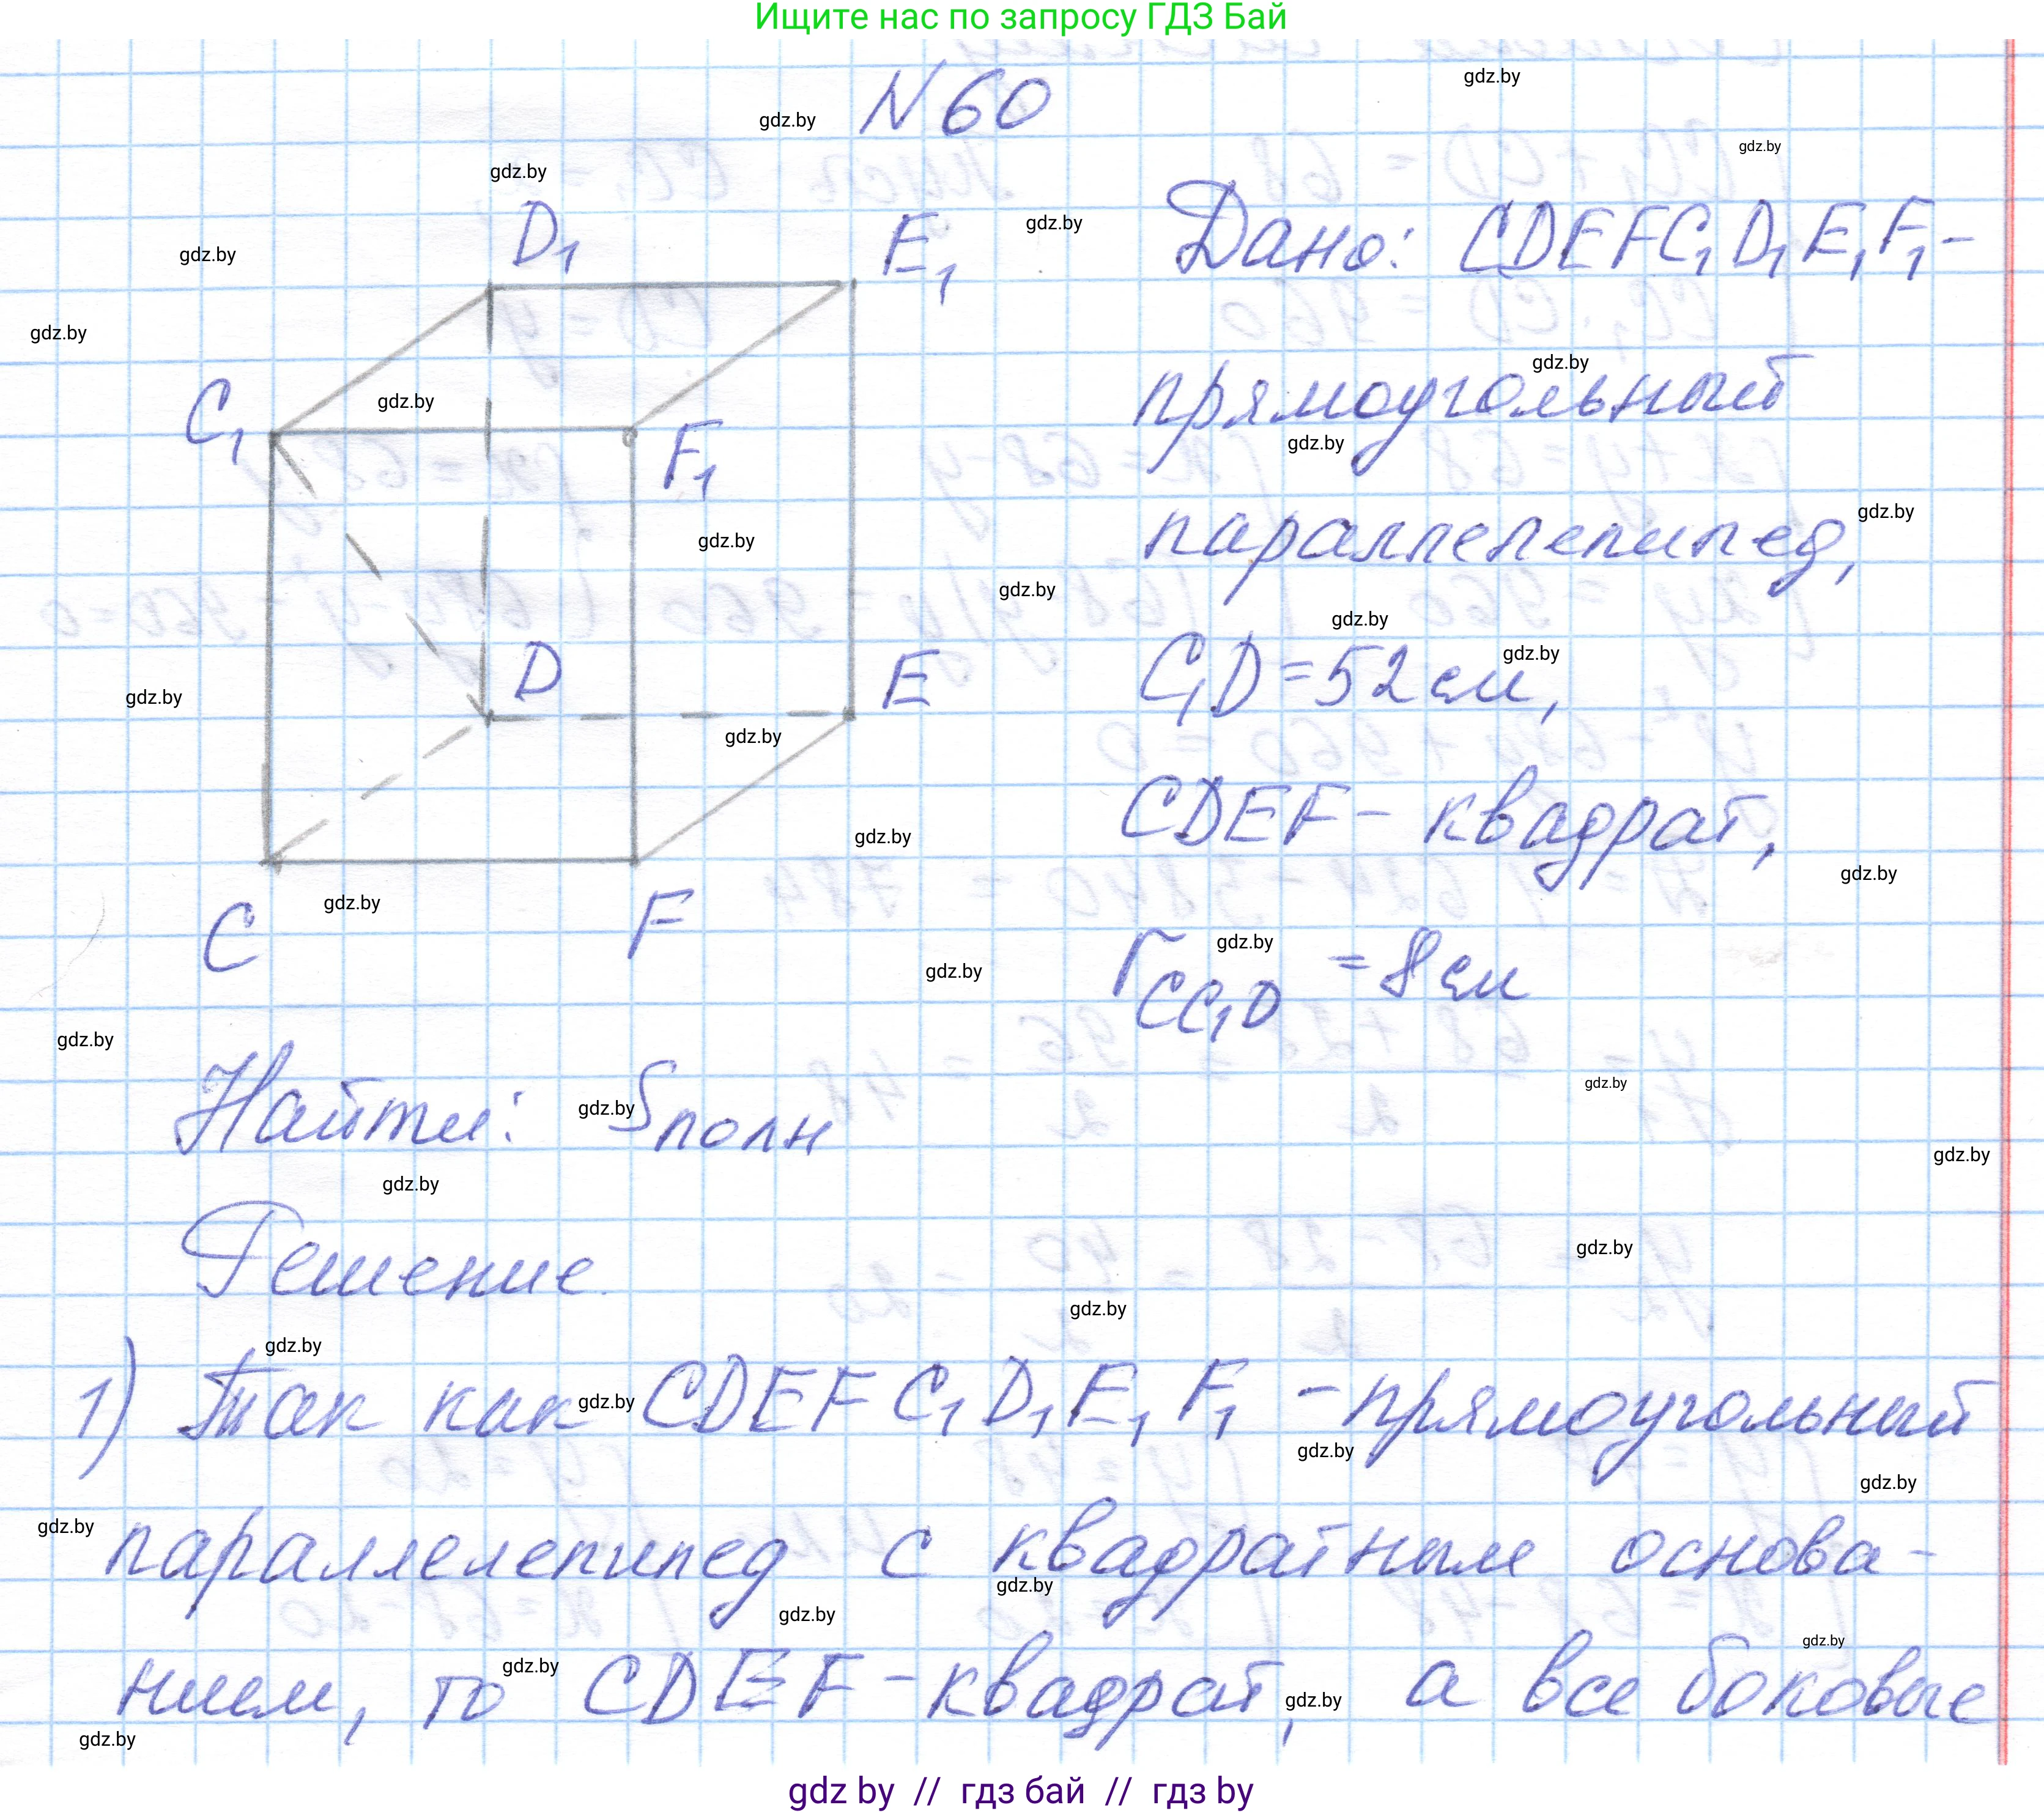 Ищите нас по запросу ГДЗ Бай
N 60
D₁
E₁
C₁
F₁
D
E
C
F
Дано: CDEFC₁D₁E₁F₁-
прямоугольный
параллелепипед,
C₁D=52 см,
CDEF- квадрат,
r CC₁D = 8 см
Найти: Sполн
Решение.
1) Так как CDEFC₁D₁E₁F₁ -прямоугольный
параллелепипед с квадратным основа-
нием, то CDEF-квадрат, а все боковые
gdz.by
gdz by // гдз бай // гдз by